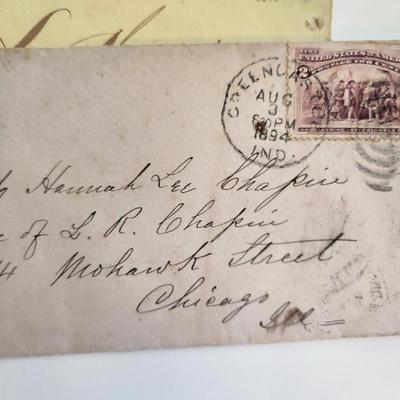 GREENCASTLE
AUG
3
6 30 PM
1894
IND.
1492
UNITED STATES OF AMERICA
2
POSTAGE TWO CENTS
LANDING OF COLUMBUS
Hannah Lee Chapin
of L. R. Chapin
4 Mohawk Street
Chicago
Ill